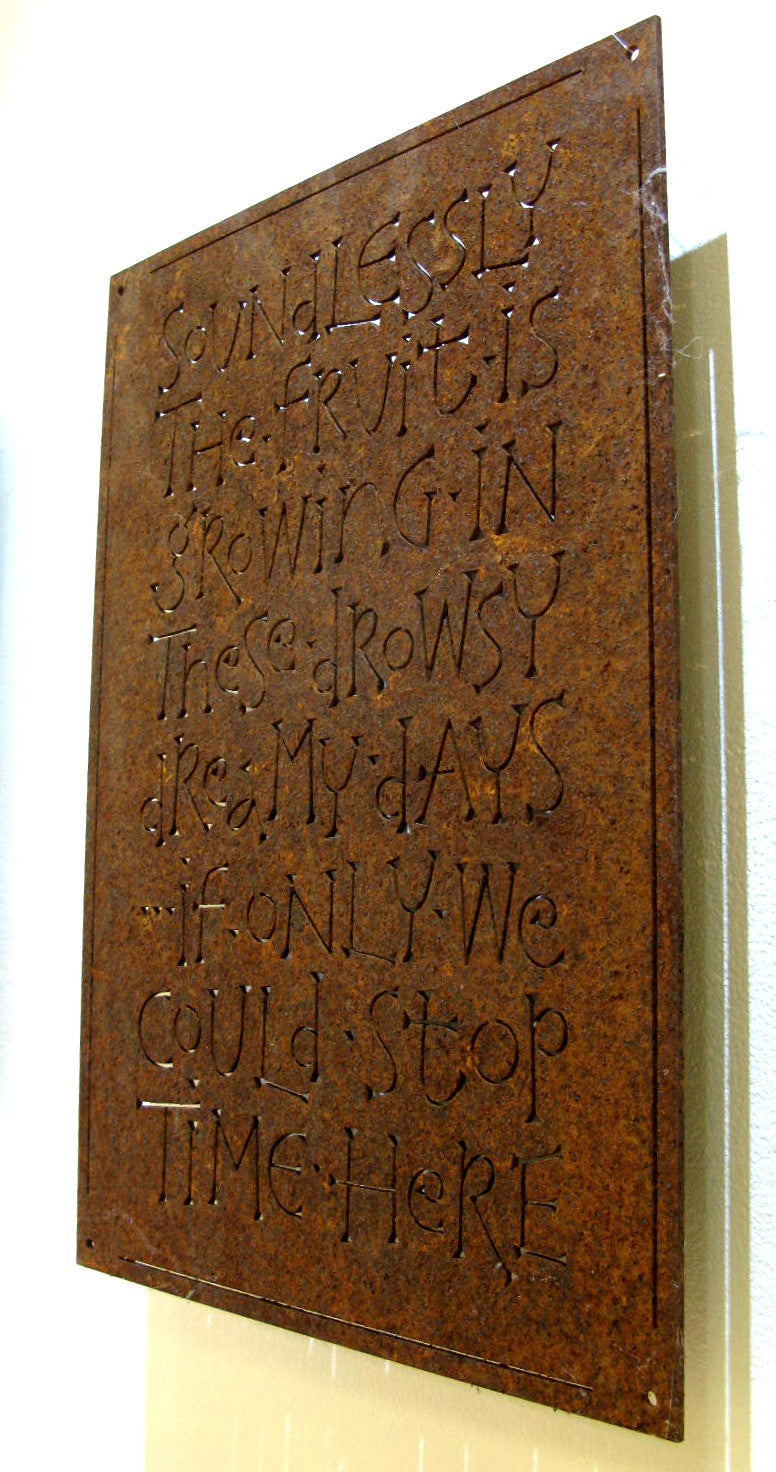 SOUNdLESSLY
THe·fRUit·iS
gROWiNG·iN
THese·dROWSY
dReaMY·dAYS
...if·ONLY·We
COULd·Stop
TIME·HeRE